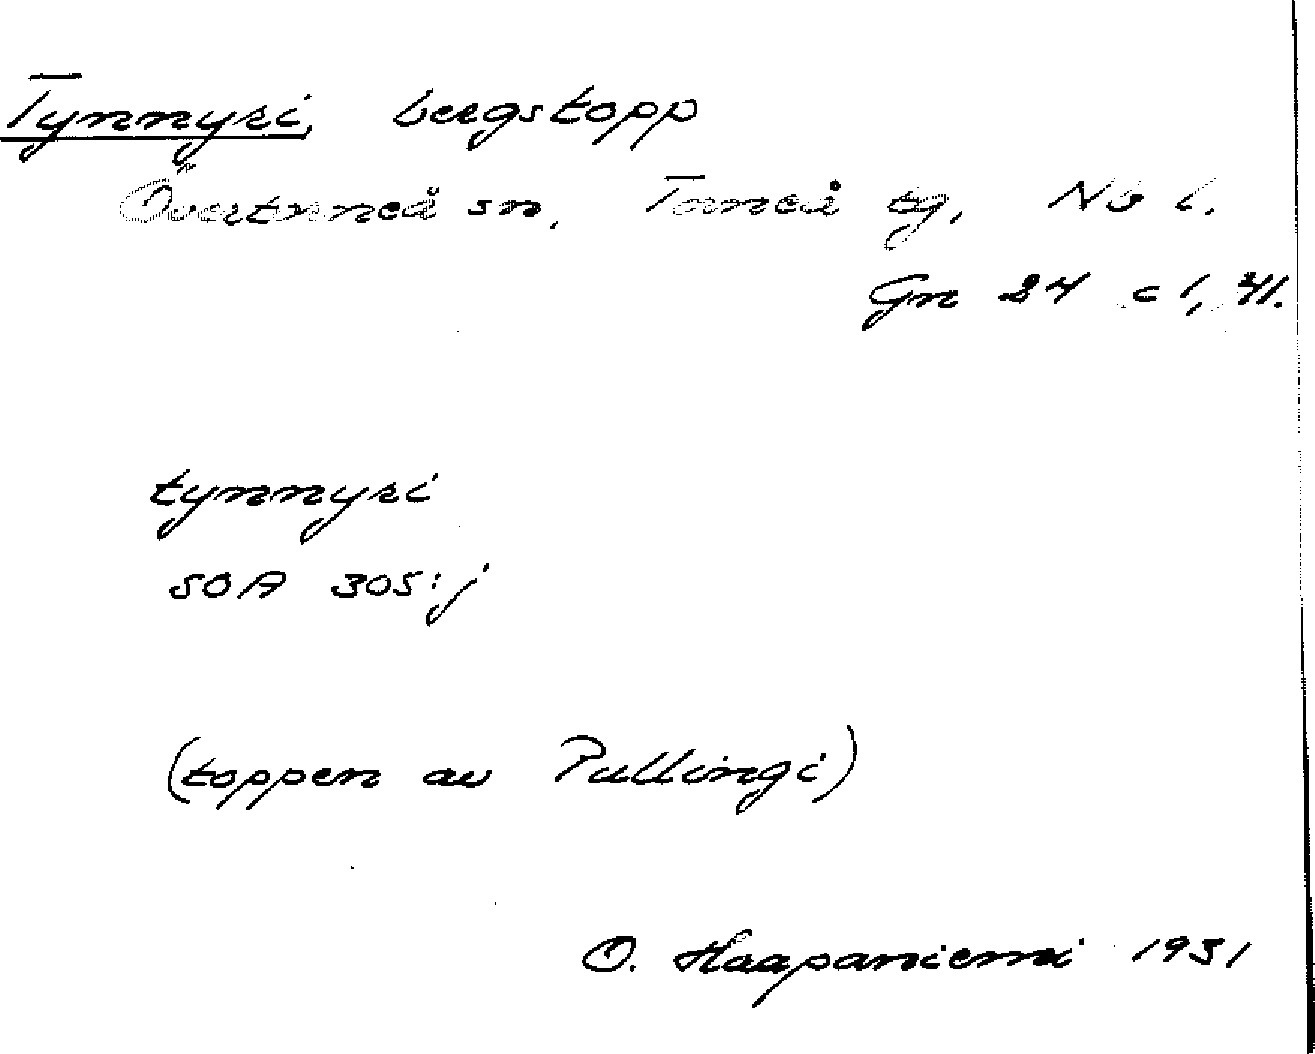 Tynnyri, bergstopp
Övertorneå sn, Torneå tg, Nb l.
Gn 24 c 1,
tynnyri
SOA 305:j
(toppen av Pullingi)
O. Haapaniemi 1931